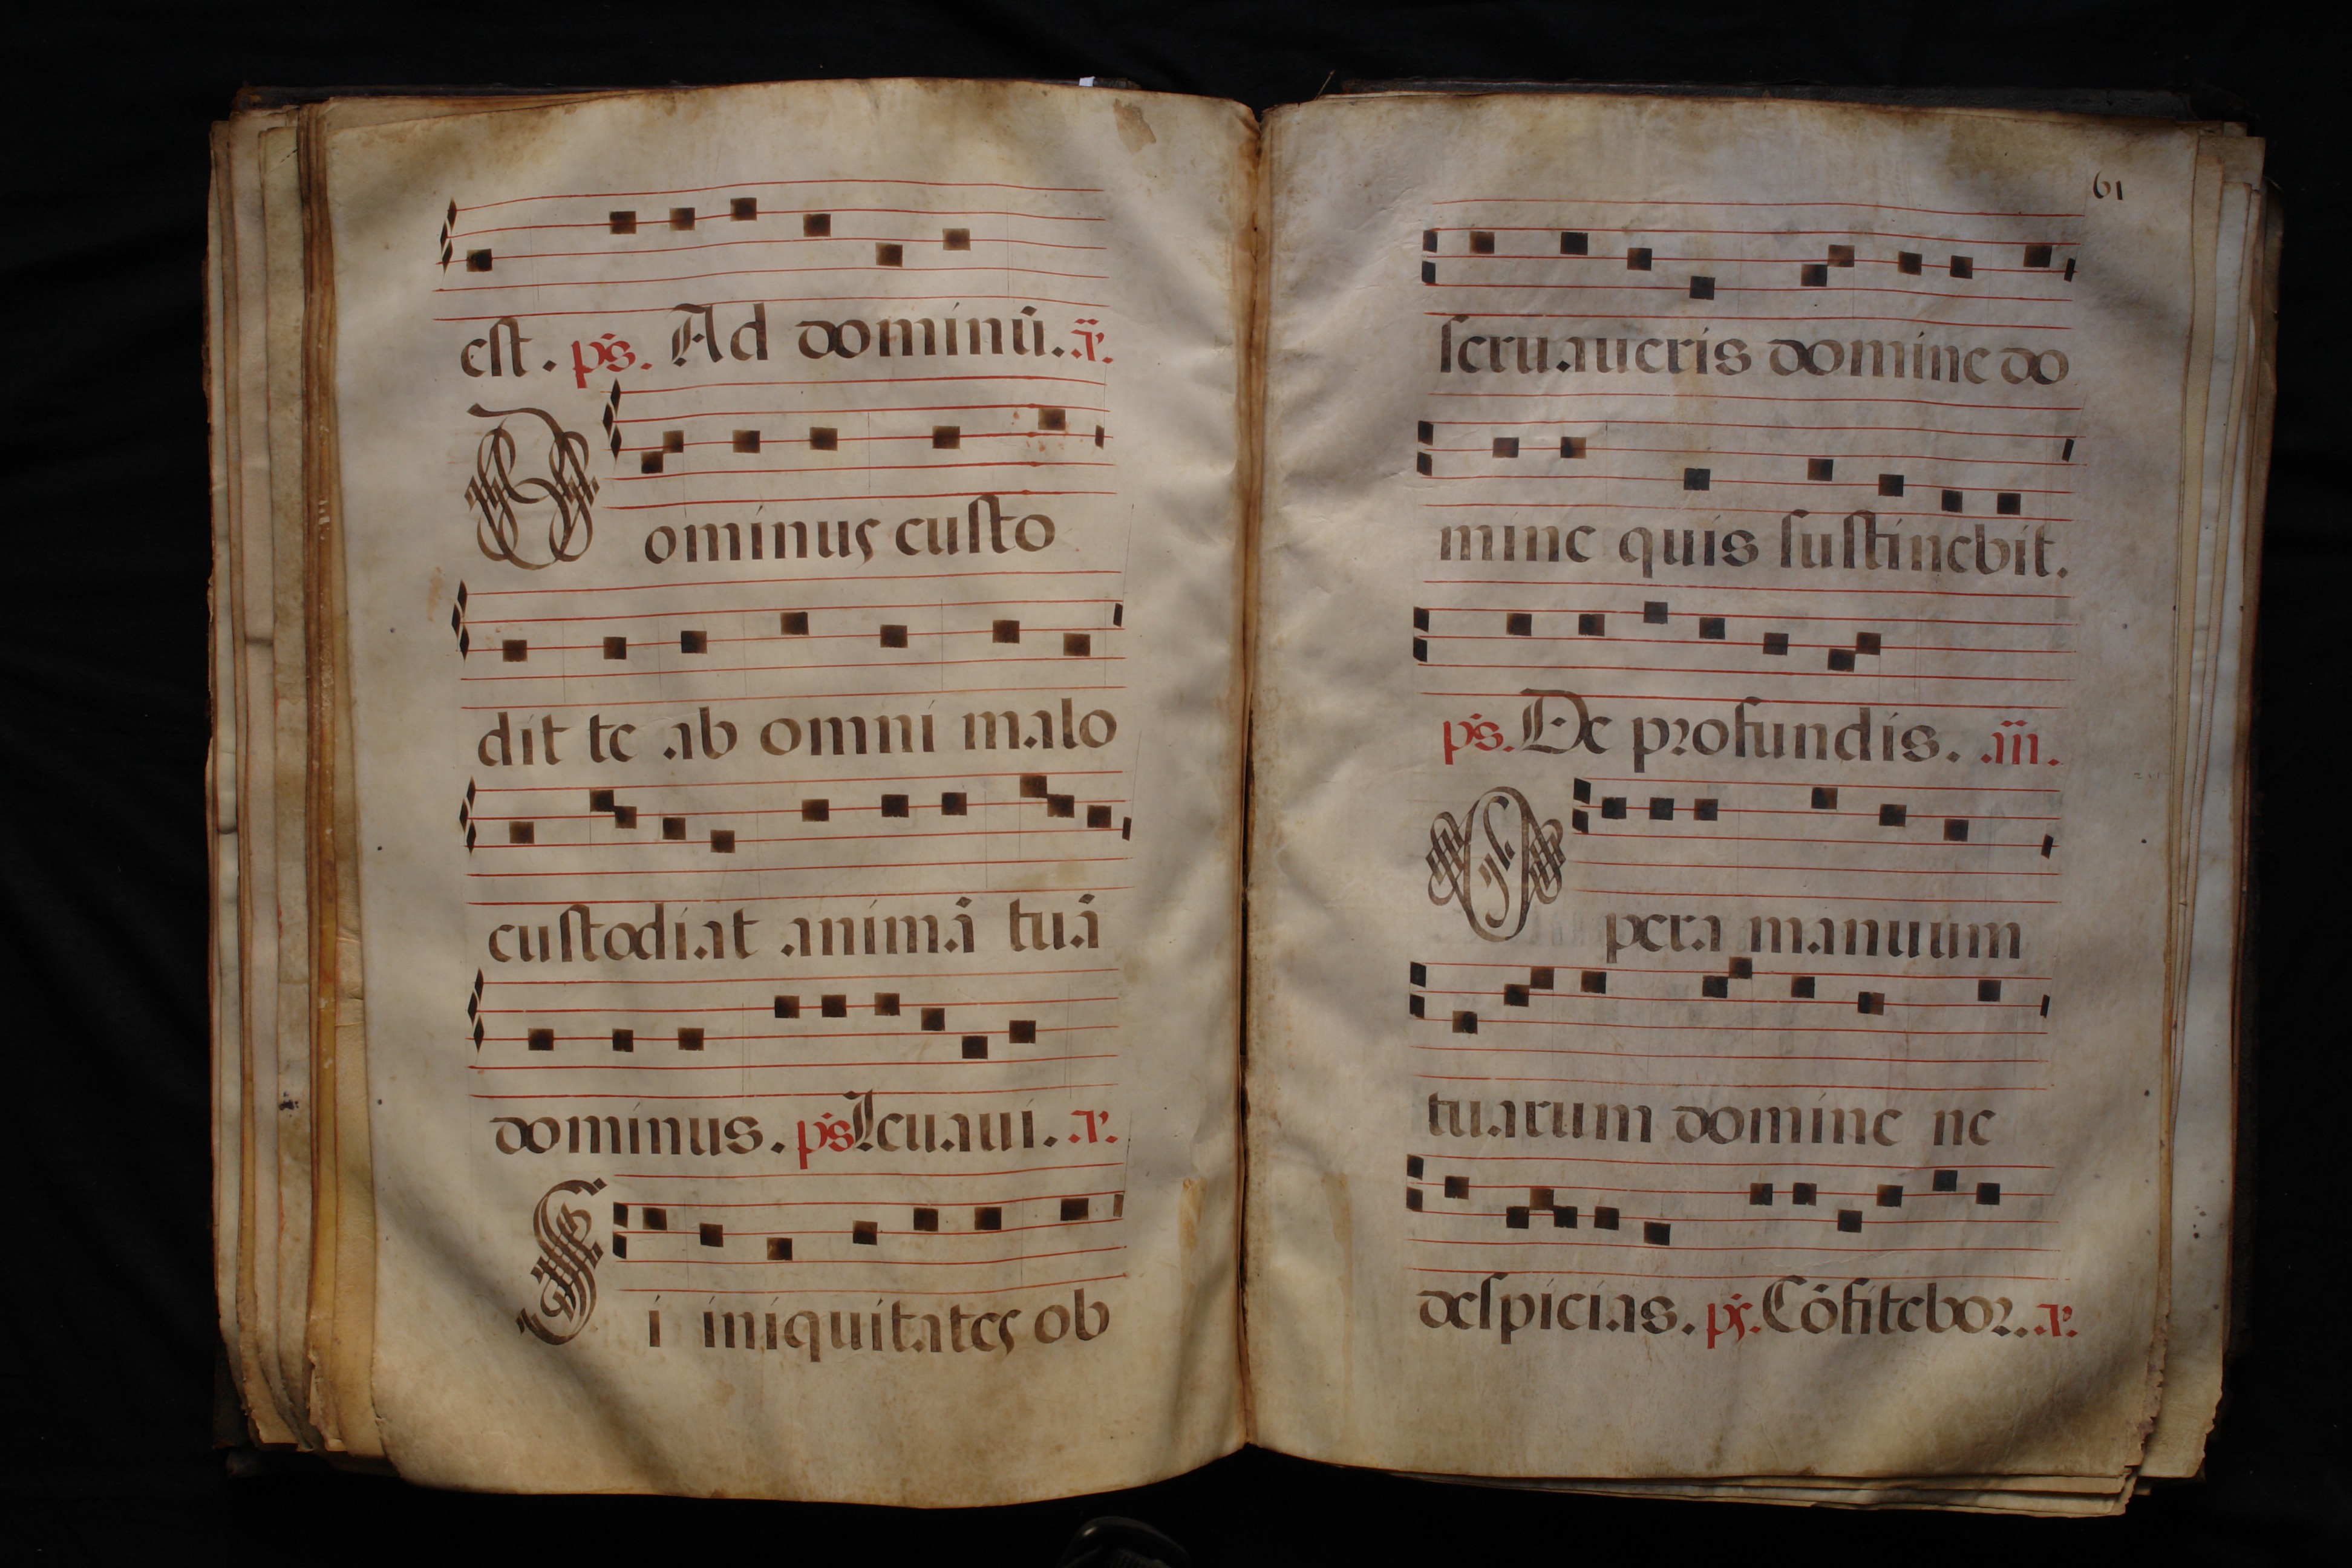 est. ps. Ad dominū. ā.
Dominus custo
dit te ab omni malo
custodiat animā tuā
dominus. ps Leuaui. a.
Si iniquitates ob
61
seruaueris domine do
mine quis sustinebit.
ps. De profundis. añ.
Opera manuum
tuarum domine ne
despicias. ps. Cōfitebor. a.